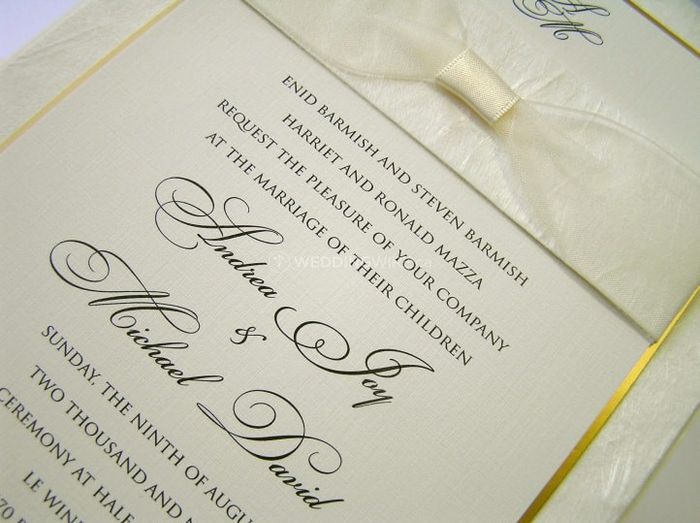 A
M
ENID BARMISH AND STEVEN BARMISH
HARRIET AND RONALD MAZZA
REQUEST THE PLEASURE OF YOUR COMPANY
AT THE MARRIAGE OF THEIR CHILDREN
Andrea Joy
&
Michael David
SUNDAY, THE NINTH OF AUGU
TWO THOUSAND AND N
CEREMONY AT HALF
LE WIN
70